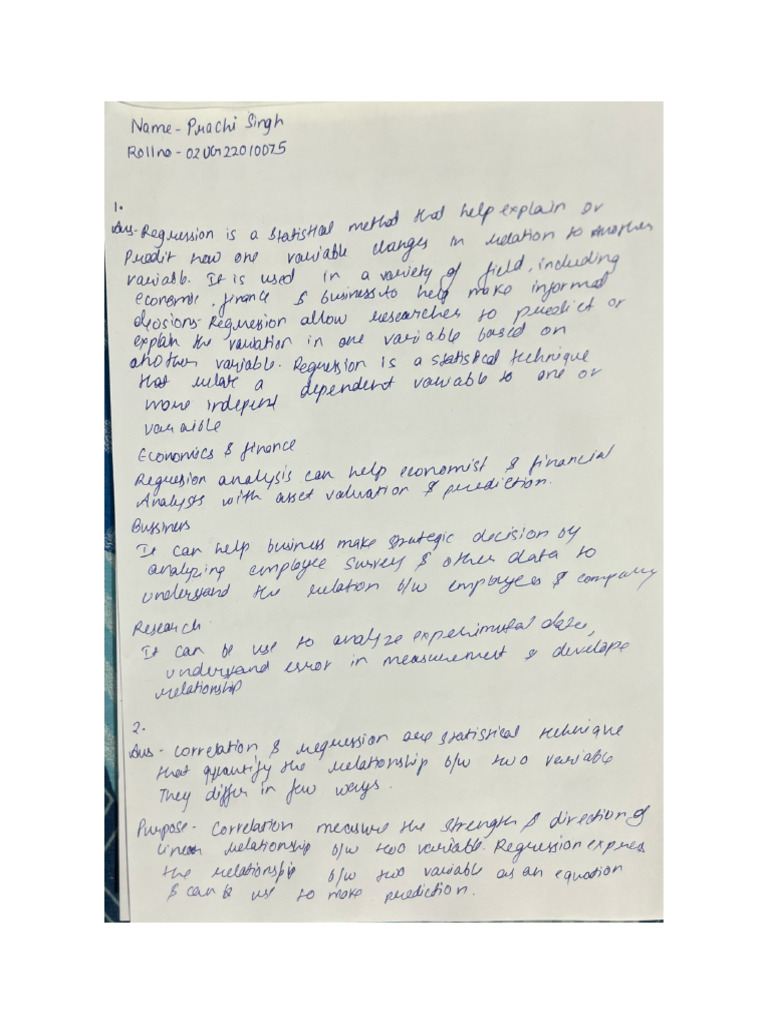 Name- Prachi Singh
Rollno - 02UG22010075
1.
Ans- Regression is a statistical method that help explain or
Predit how one variable changes in relation to another
variable. It is used in a variety of field, including
economic, finance & business to help make informed
decisions- Regression allow researches to predict or
explain the variation in one variable based on
another variable. Regression is a statistical technique
that relate a dependent variable to one or
more indepent
varaible
Economics & finance
Regression analysis can help economist & financial
Analysts with asset valuation & prediction.
Bussiness
It can help business make strategic decision by
analyzing employee survey & other data to
understand the relation b/w employees & company
Research
It can be use to analyze experimental data,
understand error in measurement & develope
relationship
2.
Ans - Correlation & regression are statistical technique
that quantify the relationship b/w two variable
They differ in few ways.
Purpose - Correlation measure the strength & direction of
linear relationship b/w two variable. Regression express
the relationship b/w two variable as an equation
& can be use to make prediction.